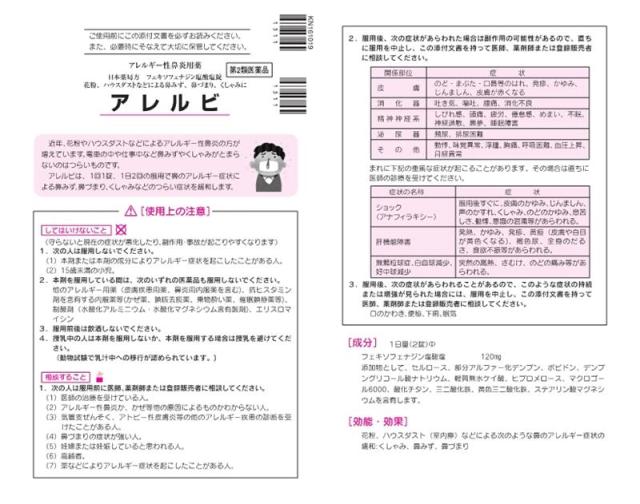 ご使用前にこの添付文書を必ずお読みください。
また、必要時にそなえて大切に保管してください。
KN161019
1311
1311
アレルギー性鼻炎用薬
第2類医薬品
日本薬局方 フェキソフェナジン塩酸塩錠
花粉、ハウスダストなどによる鼻みず、鼻づまり、くしゃみに
アレルビ
近年、花粉やハウスダストなどによるアレルギー性鼻炎の方が
増えています。電車の中や仕事中など鼻みずやくしゃみがとまら
ないのはつらいものです。
アレルビは、1回1錠、1日2回の服用で鼻のアレルギー症状に
よる鼻みず、鼻づまり、くしゃみなどのつらい症状を緩和します。
[使用上の注意]
してはいけないこと
(守らないと現在の症状が悪化したり、副作用・事故が起こりやすくなります)
1．次の人は服用しないでください。
(1) 本剤または本剤の成分によりアレルギー症状を起こしたことがある人。
(2) 15歳未満の小児。
2．本剤を服用している間は、次のいずれの医薬品も服用しないでください。
他のアレルギー用薬(皮膚疾患用薬、鼻炎用内服薬を含む)、抗ヒスタミン
剤を含有する内服薬等(かぜ薬、鎮咳去痰薬、乗物酔い薬、催眠鎮静薬等)、
制酸剤(水酸化アルミニウム・水酸化マグネシウム含有製剤)、エリスロマ
イシン
3．服用前後は飲酒しないでください。
4．授乳中の人は本剤を服用しないか、本剤を服用する場合は授乳を避けてくだ
さい。
(動物試験で乳汁中への移行が認められています。)
相談すること
1．次の人は服用前に医師、薬剤師または登録販売者に相談してください。
(1) 医師の治療を受けている人。
(2) アレルギー性鼻炎か、かぜ等他の原因によるものかわからない人。
(3) 気管支ぜんそく、アトピー性皮膚炎等の他のアレルギー疾患の診断を受
けたことがある人。
(4) 鼻づまりの症状が強い人。
(5) 妊婦または妊娠していると思われる人。
(6) 高齢者。
(7) 薬などによりアレルギー症状を起こしたことがある人。
2．服用後、次の症状があらわれた場合は副作用の可能性があるので、直ち
に服用を中止し、この添付文書を持って医師、薬剤師または登録販売者
に相談してください。
関係部位 症状
皮膚 のど・まぶた・口唇等のはれ、発疹、かゆみ、
じんましん、皮膚が赤くなる
消化器 吐き気、嘔吐、腹痛、消化不良
精神神経系 しびれ感、頭痛、疲労、倦怠感、めまい、不眠、
神経過敏、悪夢、睡眠障害
泌尿器 頻尿、排尿困難
その他 動悸、味覚異常、浮腫、胸痛、呼吸困難、血圧上昇、
月経異常
まれに下記の重篤な症状が起こることがあります。その場合は直ちに
医師の診療を受けてください。
症状の名称 症状
ショック
(アナフィラキシー) 服用後すぐに、皮膚のかゆみ、じんましん、
声のかすれ、くしゃみ、のどのかゆみ、息苦
しさ、動悸、意識の混濁等があらわれる。
肝機能障害 発熱、かゆみ、発疹、黄疸(皮膚や白目
が黄色くなる)、褐色尿、全身のだる
さ、食欲不振等があらわれる。
無顆粒球症、白血球減少、
好中球減少 突然の高熱、さむけ、のどの痛み等があ
らわれる。
3．服用後、次の症状があらわれることがあるので、このような症状の持続
または増強が見られた場合には、服用を中止し、この添付文書を持って医
師、薬剤師または登録販売者に相談してください。
口のかわき、便秘、下痢、眠気
[成分] 1日量(2錠)中
フェキソフェナジン塩酸塩 120mg
添加物として、セルロース、部分アルファー化デンプン、ポビドン、デンプ
ングリコール酸ナトリウム、軽質無水ケイ酸、ヒプロメロース、マクロゴー
ル6000、酸化チタン、三二酸化鉄、黄色三二酸化鉄、ステアリン酸マグネシ
ウムを含有します。
[効能・効果]
花粉、ハウスダスト(室内塵)などによる次のような鼻のアレルギー症状の
緩和:くしゃみ、鼻みず、鼻づまり